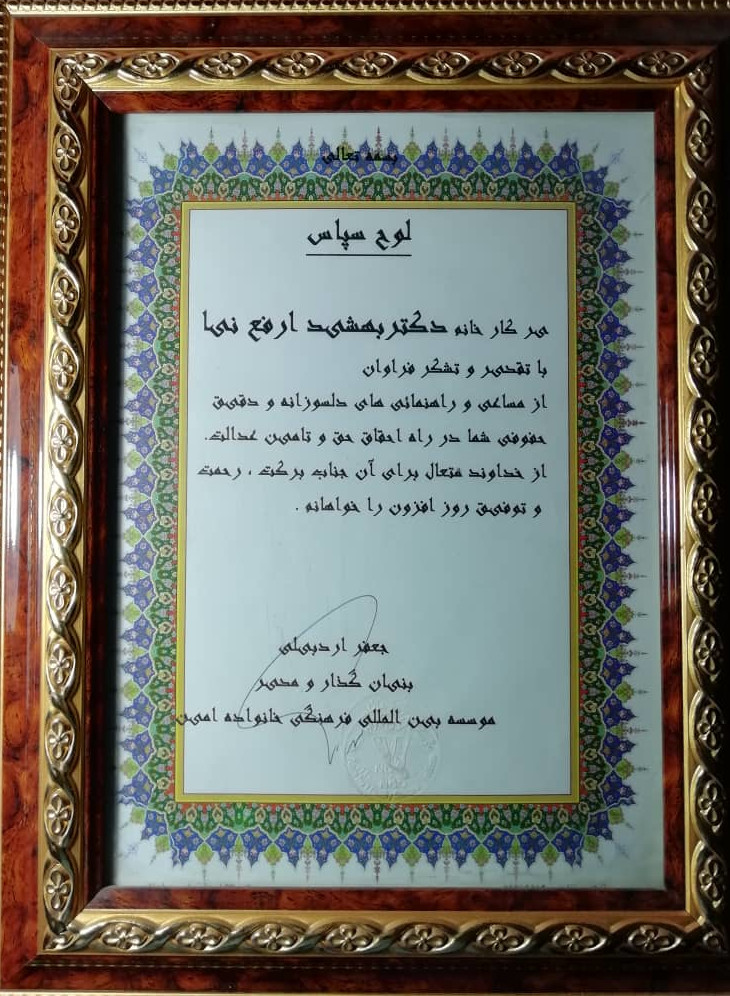 بسمه تعالی
لوح سپاس
سر کار خانم دکتربهشید ارفع نیا
با تقدیر و تشکر فراوان
از مساعی و راهنمائی های دلسوزانه و دقیق
حقوقی شما در راه احقاق حق و تامین عدالت.
از خداوند متعال برای آن جناب برکت ، رحمت
و توفیق روز افزون را خواهانم .
جعفر اردبیلی
بنیان گذار و مدیر
موسسه بین المللی فرهنگی خانواده امین